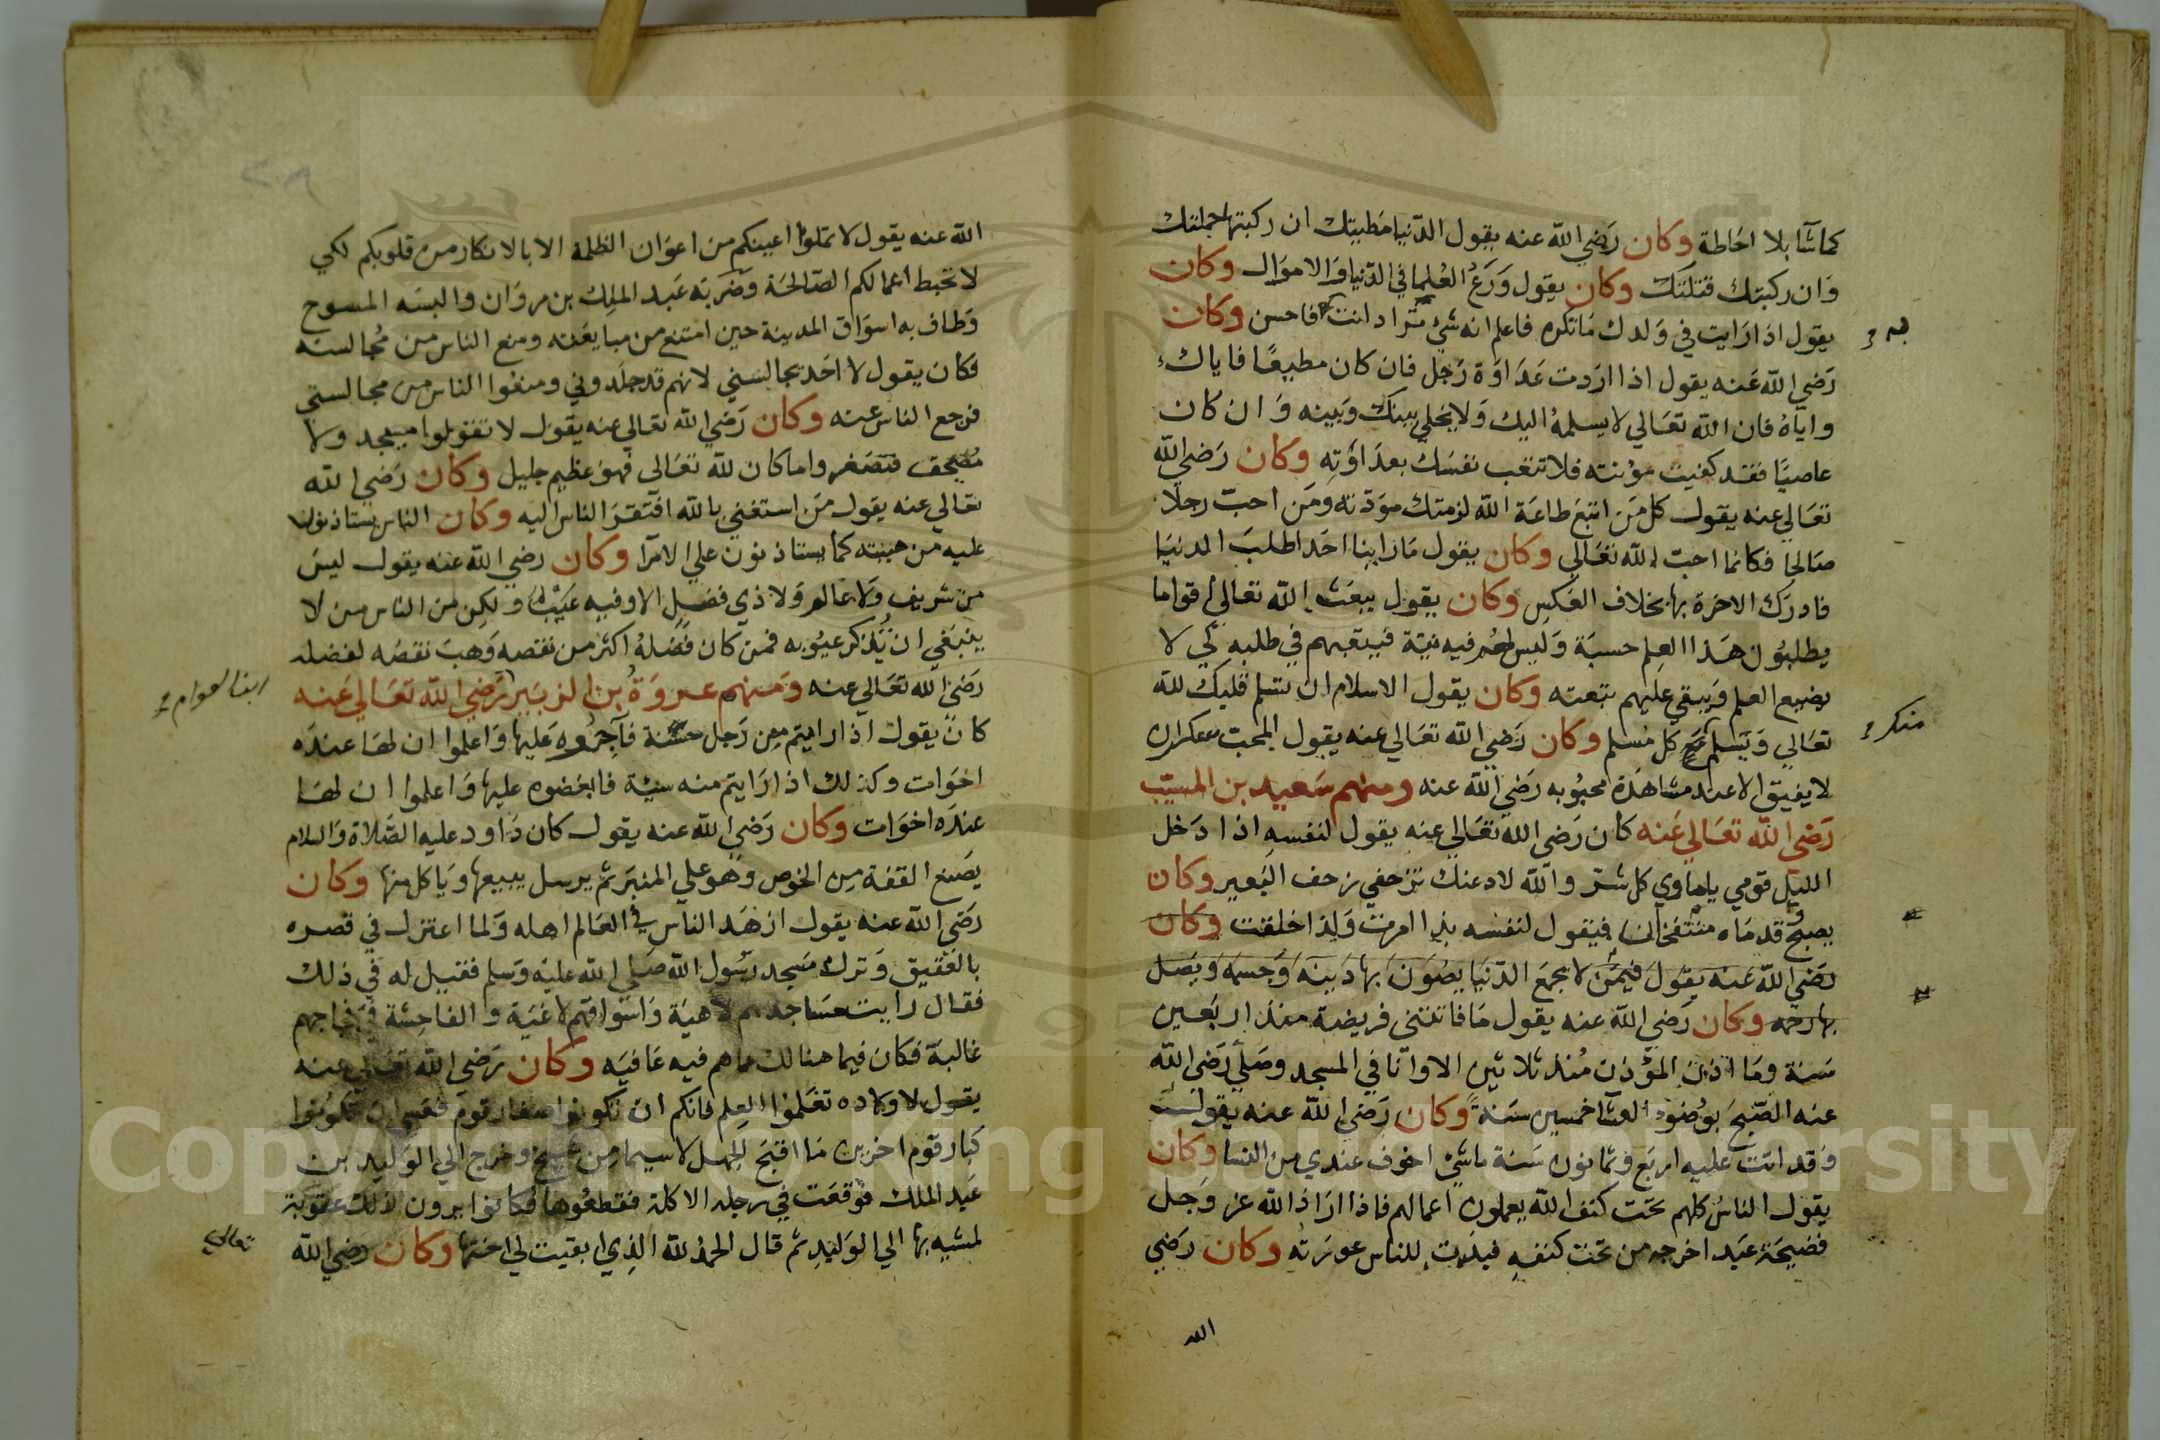 كما شا بلا احاطة وكان رضي الله عنه يقول الدنيا مطيتك ان ركبتها حملتك
وان ركبتك قتلتك وكان يقول ورع العلما في الدنيا والاموال وكان
يقول اذا رايت في ولدك ما تكره فاعلم انه شي تراد انت به فاحسن وكان
رضي الله عنه يقول اذا اردت عداوة رجل فان كان مطيعا فاياك
واياه فان الله تعالي لا يسلمه اليك ولا يخلي بينك وبينه وان كان
عاصيا فقد كفيت مؤنته فلا تتعب نفسك بعداوته وكان رضي الله
تعالي عنه يقول كل من اتبع طاعة الله لزمتك مودته ومن احب رجلا
صالحا فكانما احب الله تعالي وكان يقول ما راينا احدا طلب الدنيا
فادرك الاخرة بها بخلاف العكس وكان يقول يبعث الله تعالي اقواما
يطلبون هذا العلم حسبة وليس لهم فيه نية فيبتعثهم في طلبه كي لا
يضيع العلم ويبقي عليهم تبعته وكان يقول الاسلام ان يسلم قلبك لله
تعالي ويسلم كل مسلم وكان رضي الله تعالي عنه يقول المحب سكران
لا يفيق الا عند مشاهدة محبوبه رضي الله عنه ومنهم سعيد بن المسيب
رضي الله تعالي عنه كان رضي الله تعالي عنه يقول لنفسه اذا دخل
الليل قومي يا ماوي كل شر والله لادعنك تزحفي زحف البعير وكان
يصبح وقدماه منتفختان فيقول لنفسه بذا امرت ولذا خلقت وكان
رضي الله عنه يقول فيمن لا يجمع الدنيا يصون بها دينه وجسمه ويصل
بها رحمه وكان رضي الله عنه يقول ما فاتتني فريضة منذ اربعين
سنة وما اذن المؤذن منذ ثلاثين الا وانا في المسجد وصلي رضي الله
عنه الصبح بوضوء العشا خمسين سنة وكان رضي الله عنه يقول
وقد اتت عليه اربع وثمانون سنة ما شي اخوف عندي من النسا وكان
يقول الناس كلهم تحت كنف الله يعملون اعمالهم فاذا اراد الله عز وجل
فضيحة عبد اخرجه من تحت كنفه فبدت للناس عورته وكان رضي
الله
الله عنه يقول لا تملوا اعينكم من اعوان الظلمة الا بالانكار من قلوبكم لكي
لا تحبط اعمالكم الصالحة وضربه عبد الملك بن مروان والبسه المسوح
وطاف به اسواق المدينة حين امتنع من مبايعته ومنع الناس من مجالسته
فكان يقول لا احد يجالسني لانهم قد جلدوني ومنعوا الناس من مجالستي
فرجع الناس عنه وكان رضي الله تعالي عنه يقول لا تقولوا مسيجد ولا
مصيحف فتصغروا ما كان لله تعالي فهو عظيم جليل وكان رضي الله
تعالي عنه يقول من استغني بالله افتقر الناس اليه وكان الناس يستاذنون
عليه من هيبته كما يستاذنون علي الامرا وكان رضي الله عنه يقول ليس
من شريف ولا عالم ولا ذي فضل الا وفيه عيب ولكن من الناس من لا
ينبغي ان تذكر عيوبه فمن كان فضله اكثر من نقصه وهب نقصه لفضله
رضي الله تعالي عنه ومنهم عروة بن الزبير رضي الله تعالي عنه
كان يقول اذا رايتم من رجل حسنة عليها واعلموا ان لها عنده
اخوات وكذلك اذا رايتم منه سيئة فابغضوه عليها واعلموا ان لها
عنده اخوات وكان رضي الله عنه يقول كان داود عليه الصلاة والسلام
يصنع القفة من الخوص وهو علي المنبر ثم يرسل يبيعها وياكل منها وكان
رضي الله عنه يقول ازهد الناس في العالم اهله ولما اعتزل في قصره
بالعقيق وترك مسجد رسول الله صلي الله عليه وسلم فقيل له في ذلك
فقال رايت مساجدهم لاهية واسواقهم لاغية والفاحشة في فجاجهم
غالبة فكان فيما هنالك مما هم فيه عافية وكان رضي الله تعالي عنه
يقول لاولاده تعلموا العلم فانكم ان تكونوا صغار قوم فعسي ان تكونوا
كبار قوم اخرين ما اقبح الجهل لا سيما من شيخ وخرج الي الوليد بن
عبد الملك فوقعت في رجله الاكلة فقطعوها فكانوا يرون ذلك عقوبة
لمشيه بها الي الوليد ثم قال الحمد لله الذي ابقيت لي اختها وكان رضي الله
ابن العوام
تعالي